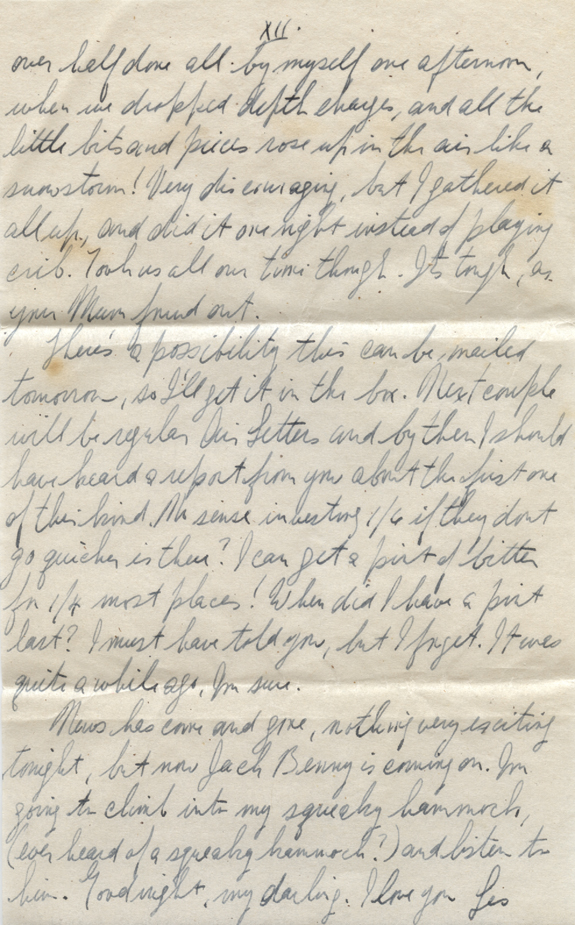 XII.
over half done all by myself one afternoon,
when we dropped depth charges, and all the
little bits and pieces rose up in the air like a
snowstorm! Very discouraging, but I gathered it
all up, and did it one night instead of playing
crib. Took us all our time though. It's tough, as
your Mum found out.
There's a possibility this can be mailed
tomorrow, so I'll get it in the box. Next couple
will be regular Air Letters and by then I should
have heard a report from you about the first one
of their kind. No sense investing 1/6 if they don't
go quicker is there? I can get a pint o' bitter
for 1/4 most places! When did I have a pint
last? I must have told you, but I forget. It was
quite a while ago, I'm sure.
News has come and gone, nothing very exciting
tonight, but now Jack Benny is coming on. I'm
going to climb into my squeaky hammock,
(ever heard of a squeaky hammock?) and listen to
him. Goodnight, my darling. I love you Les